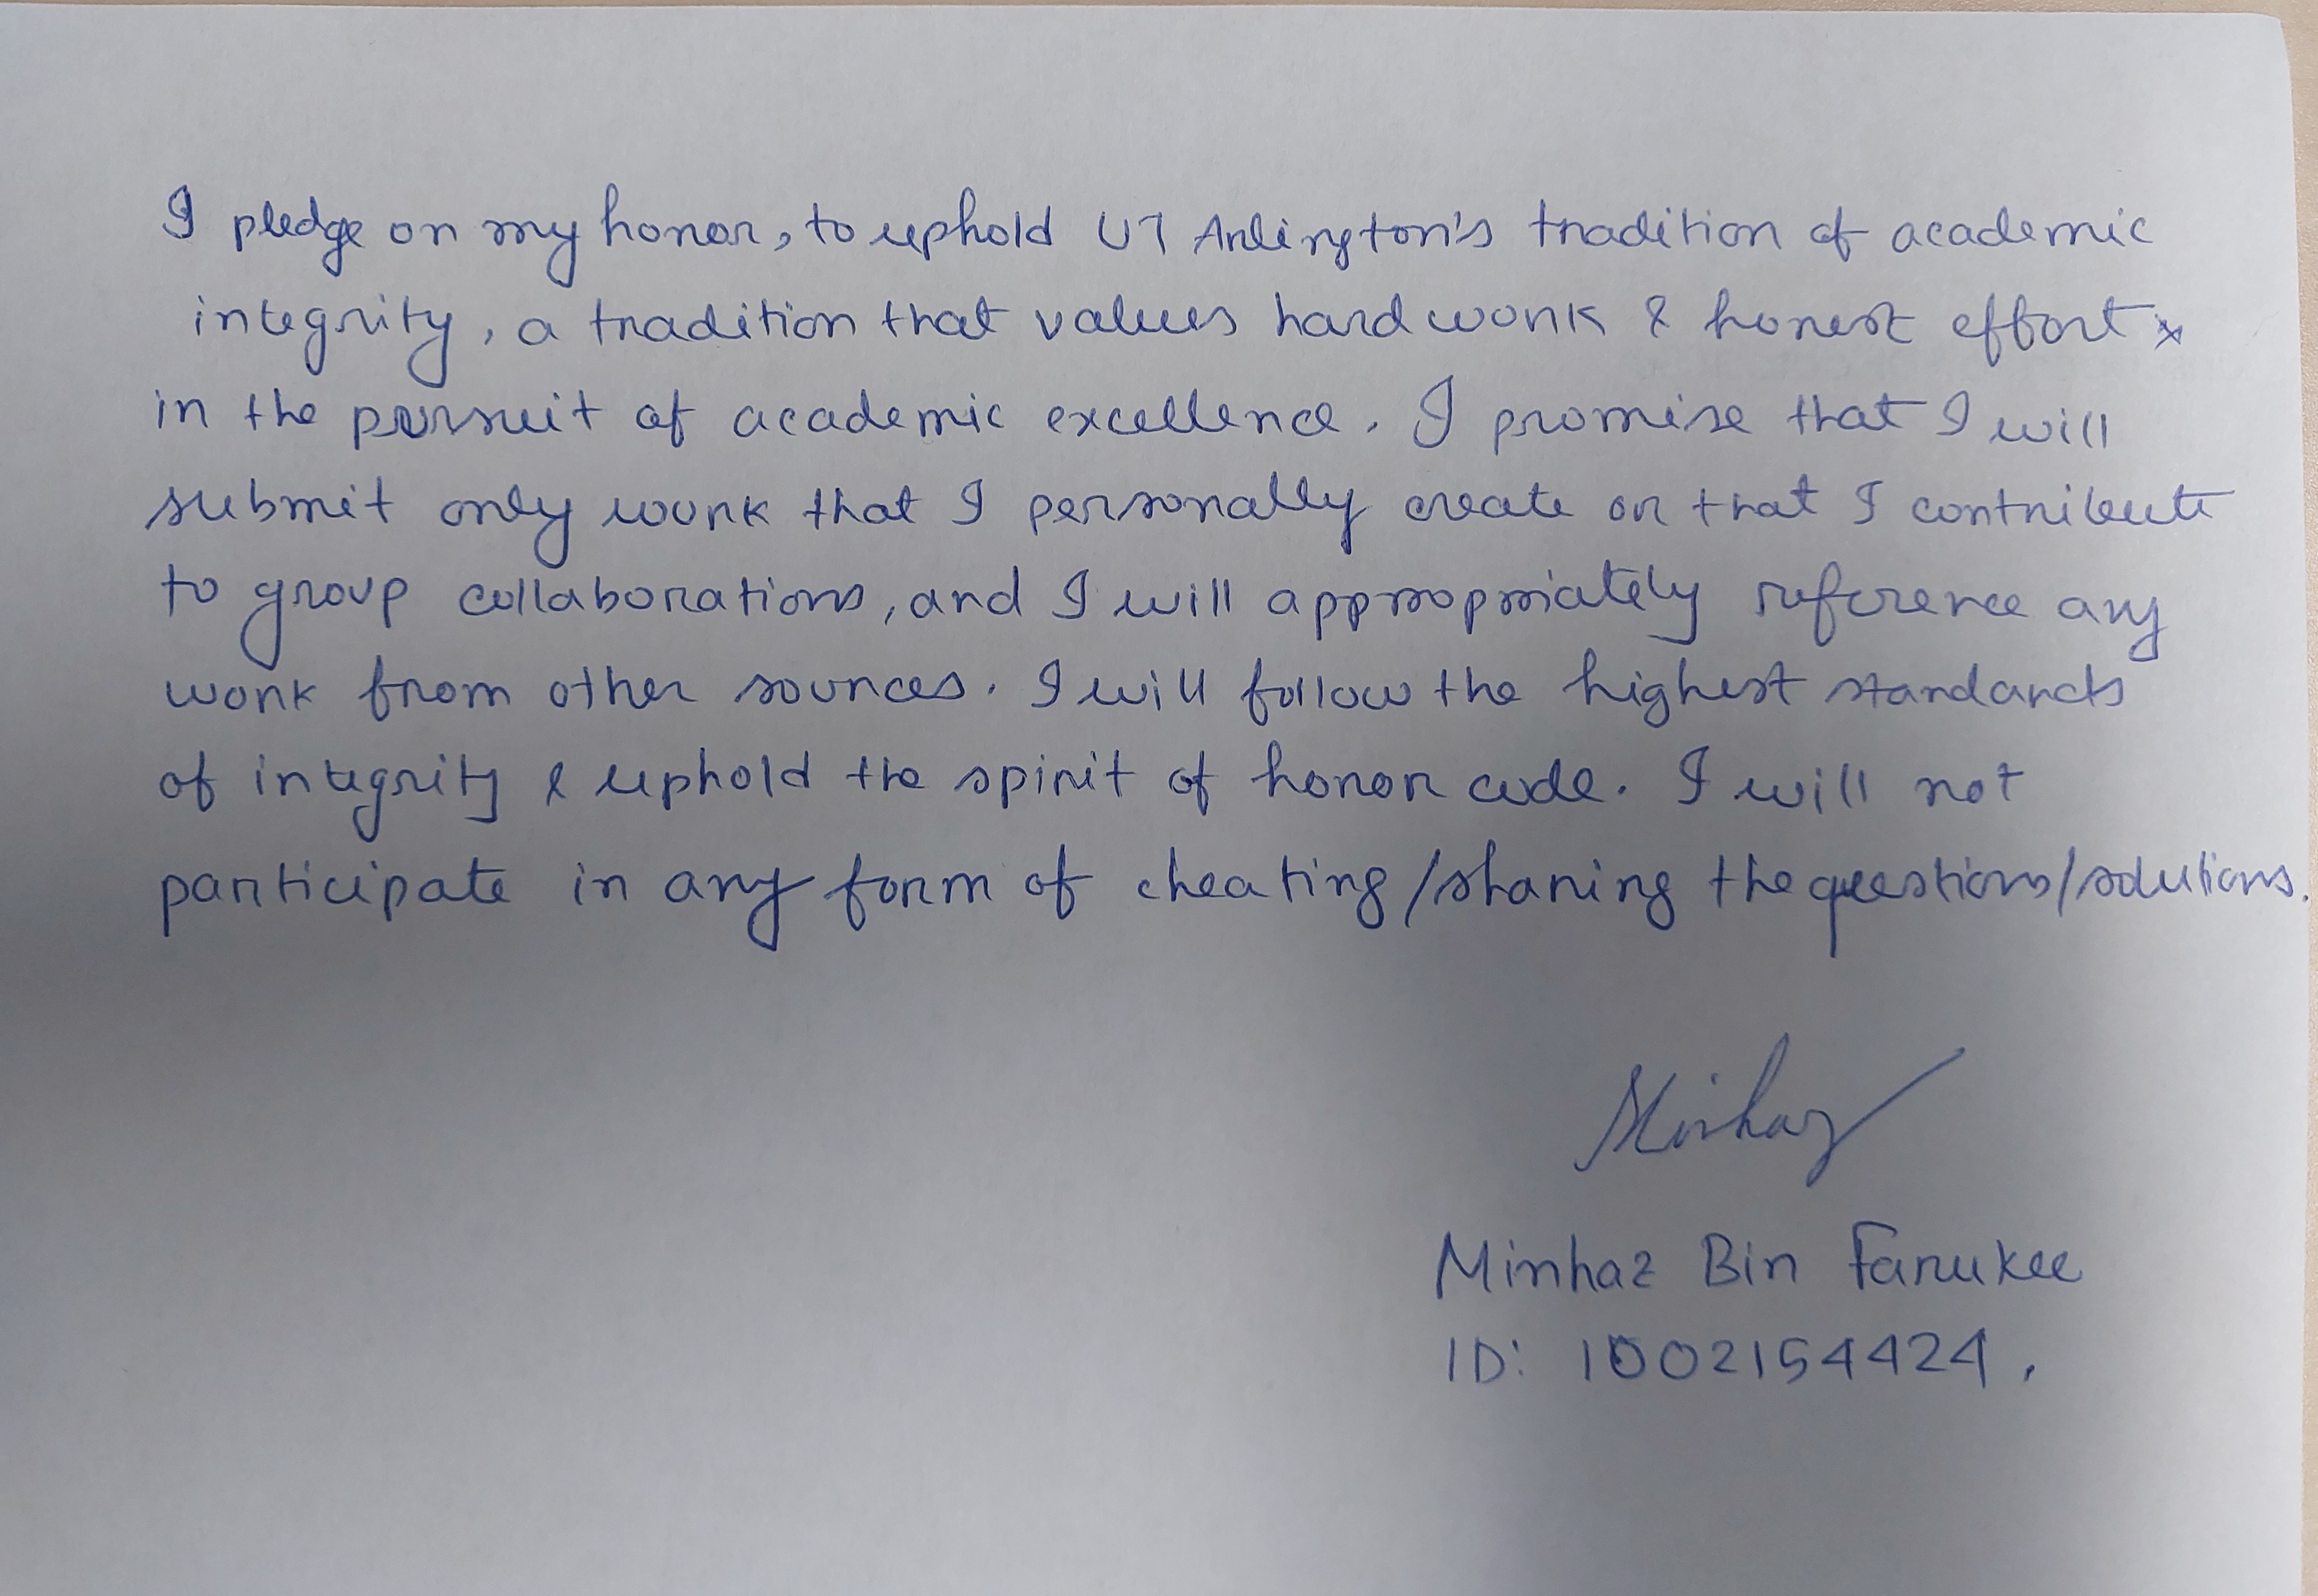 I pledge on my honor, to uphold UT Arlington's tradition of academic
integrity, a tradition that values hard work & honest effort
in the pursuit of academic excellence. I promise that I will
submit only work that I personally create or that I contribute
to group collaborations, and I will appropriately reference any
work from other sources. I will follow the highest standards
of integrity & uphold the spirit of honor code. I will not
participate in any form of cheating/sharing the questions/solutions.
Minhaz
Minhaz Bin Farukee
ID: 1002154424.